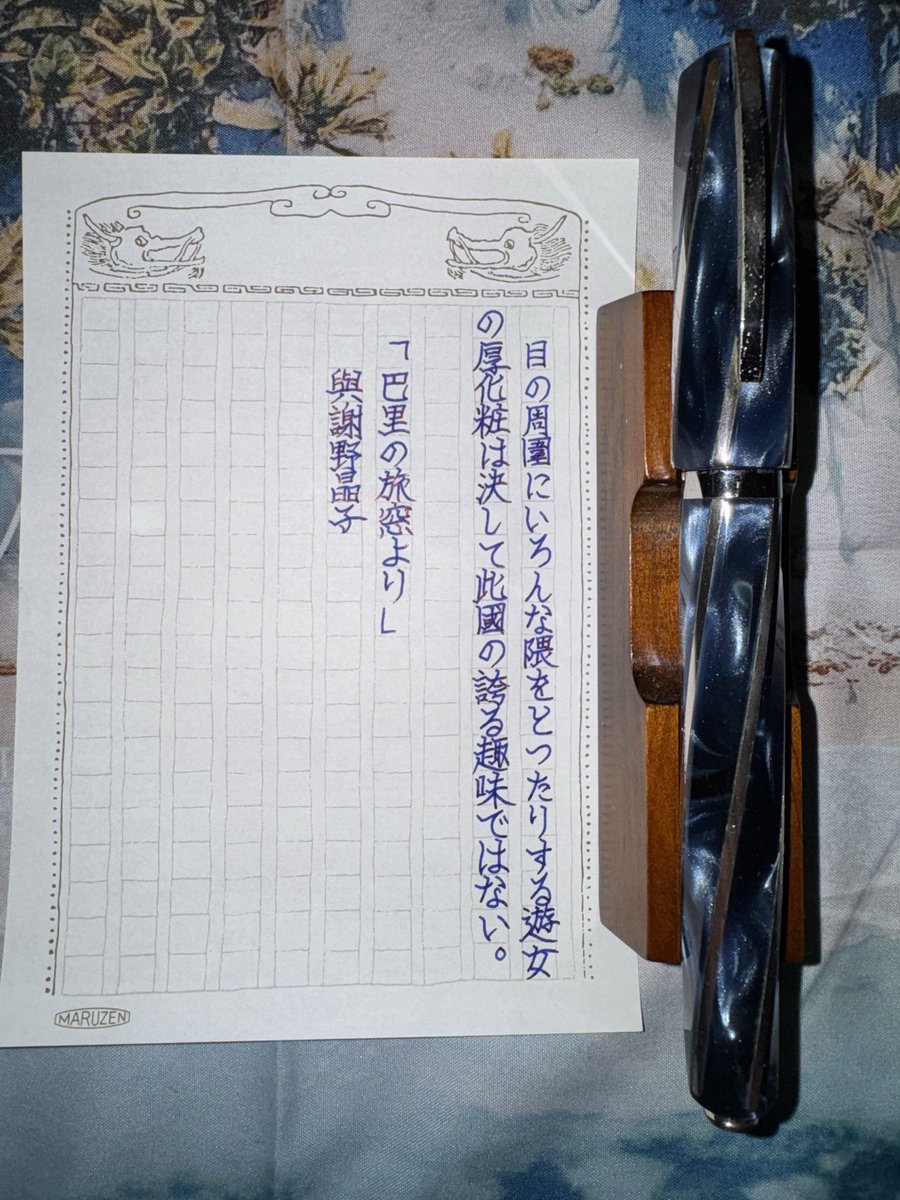 目の周圍にいろんな隈をとつたりする遊女
の厚化粧は決して此國の誇る趣味ではない。
「巴里の旅窓より」
與謝野晶子
MARUZEN